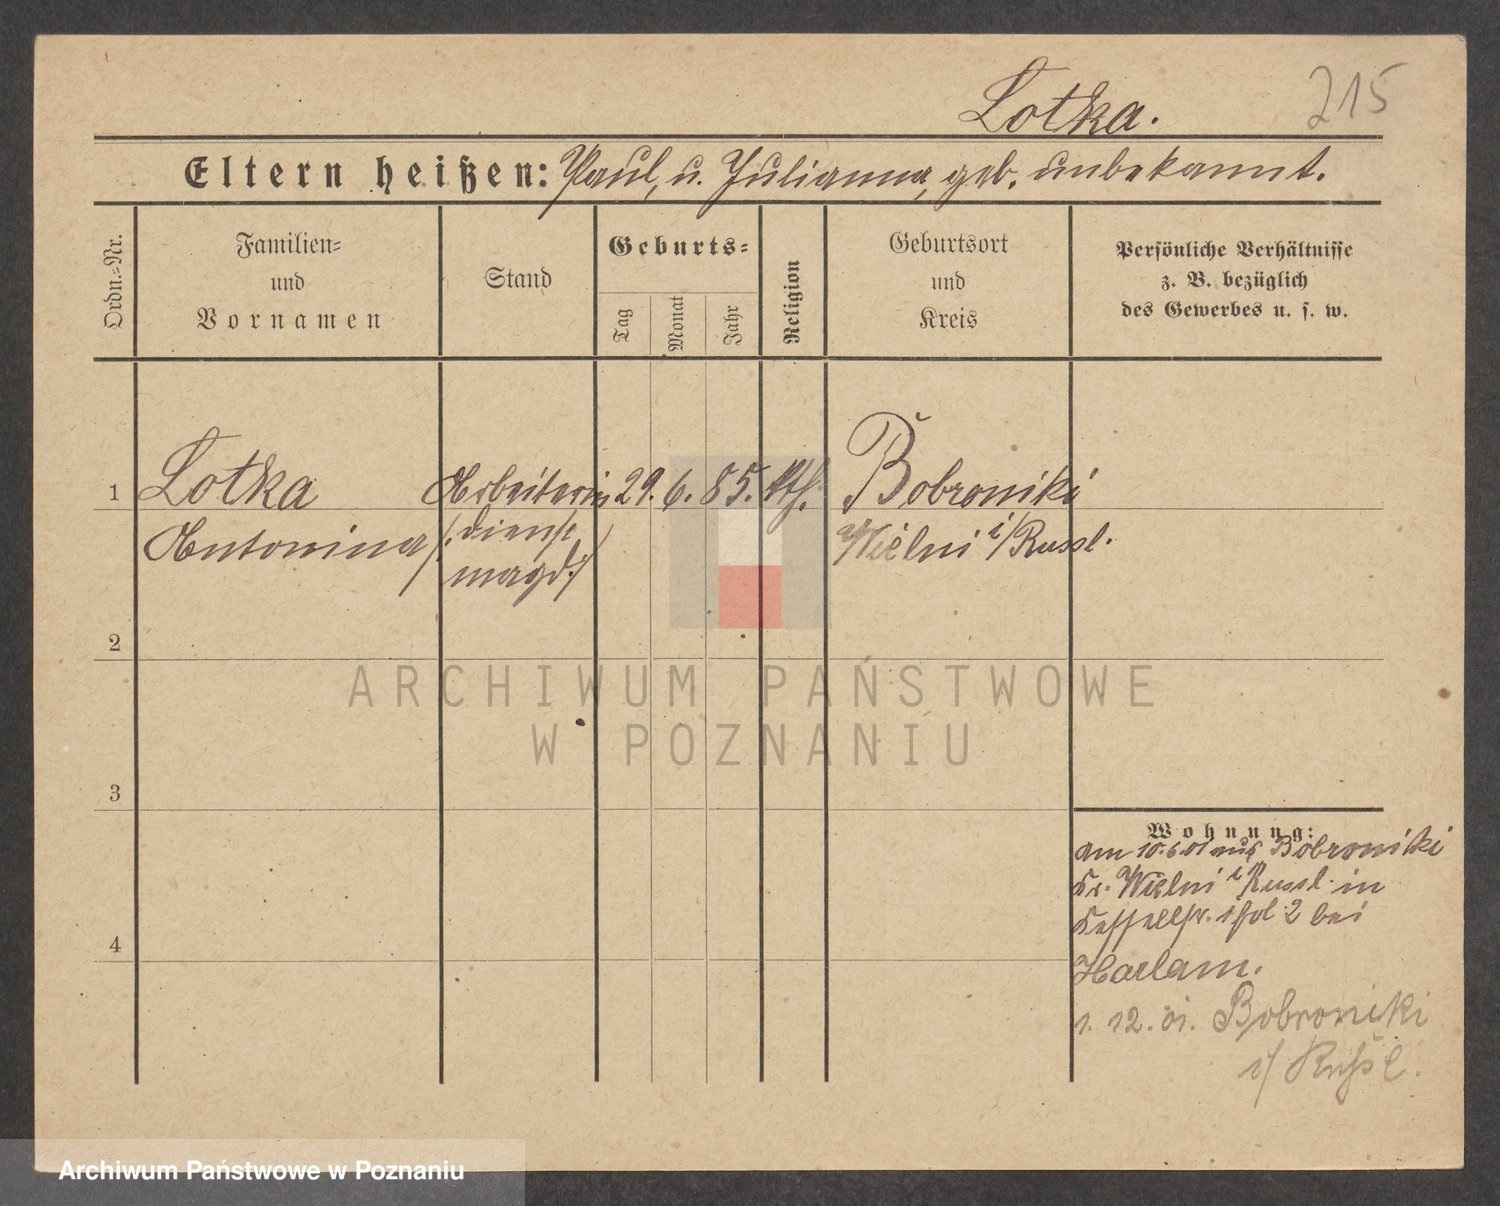 Lotka. 215
Eltern heißen: Paul, u. Julianna, geb. unbekannt.
Ordn.=Nr.
Familien=
und
Vornamen
Stand
Geburts=
Tag
Monat
Jahr
Religion
Geburtsort
und
Kreis
Persönliche Verhältnisse
z. B. bezüglich
des Gewerbes u. s. w.
1 Lotka Arbeiterin 29. 6. 85. kth. Bobroniki
Antonina /:dienst Wielni i/Russl.
magd:/
2
3
4
Wohnung:
am 10.6.01 aus Bobroniki
Kr. Wielni i/Russl. in
2 bei
Harlam.
1. 12. 01. Bobroniki
i/ Rußl.
ARCHIWUM PAŃSTWOWE
W POZNANIU
Archiwum Państwowe w Poznaniu